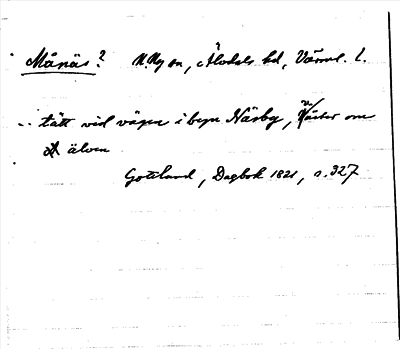 Månäs? N. Ny sn, Älvdals hd, Värml. l.
.. tätt vid vägen i byn Näsby, väster om
älven
Gottlund, Dagbok 1821, s. 327